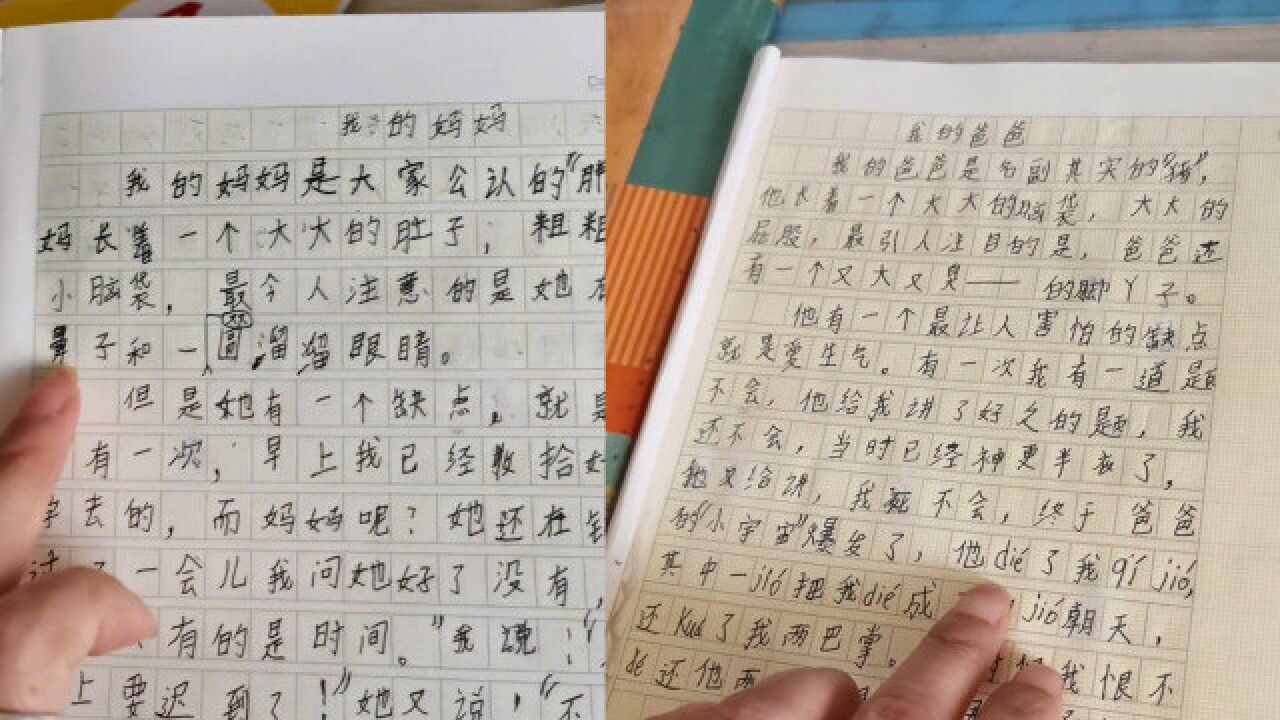 我的妈妈
我的妈妈是大家公认的"胖
妈长着一个大大的肚子，粗粗
小脑袋，最令人注意的是她有
鼻子和一双圆溜溜眼睛。
但是她有一个缺点，就是
有一次，早上我已经收拾好
去的，而妈妈呢？她还在
过了一会儿我问她好了没有，
有的是时间。"我说！"
上要迟到了！"她又说，"不
我的爸爸
我的爸爸是名副其实的"猪"，
他长着一个大大的脑袋，大大的
屁股，最引人注目的是，爸爸还
有一个又大又臭——的脚丫子。
他有一个最让人害怕的缺点
就是爱生气。有一次我有一道题
不会，他给我讲了好久的题，我
还不会，当时已经神更半夜了，
他又给讲，我还不会，终于爸爸
的"小宇宙"爆发了，他dié了我qí jió，
其中一jió把我dié成 jió朝天，
还Kuó了我两巴掌。 我恨不
de还他两